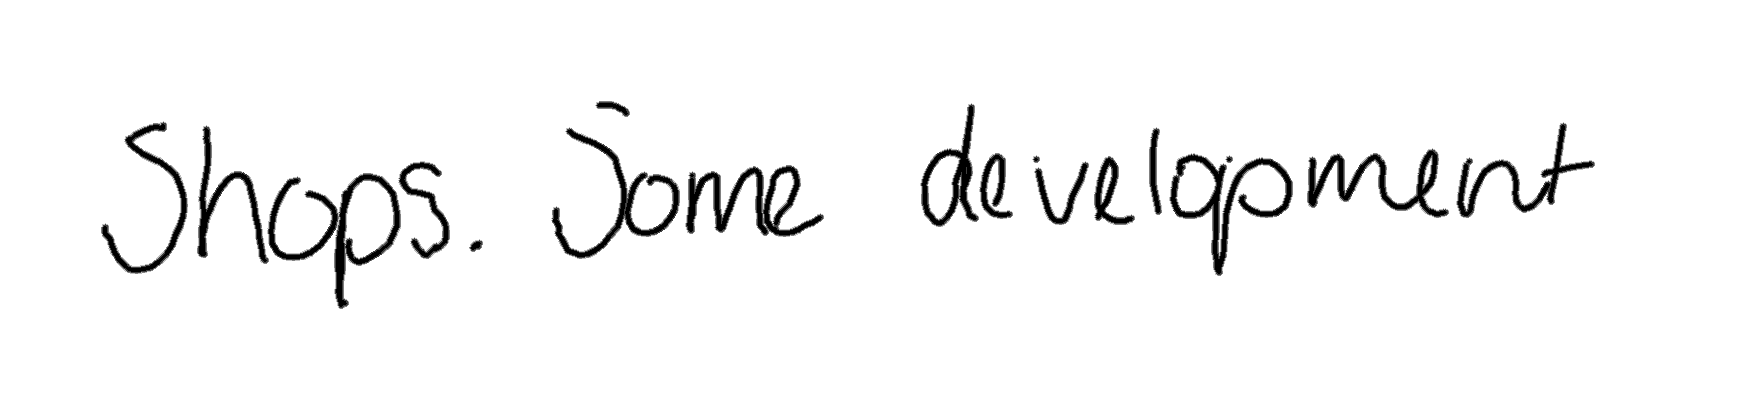 Shops. Some development